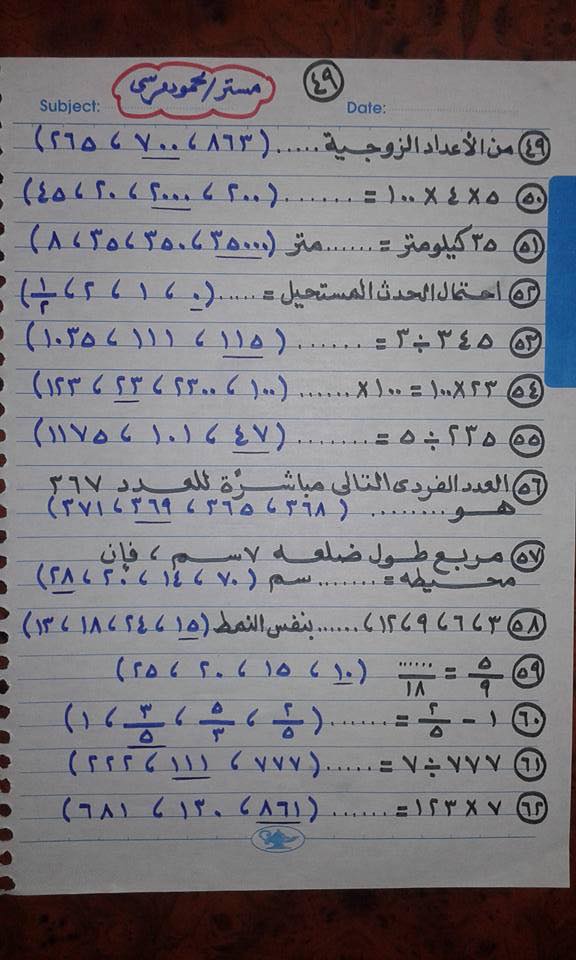 ٤٩
مستر/محمود مرسى
Subject: Date:
٤٩ من الأعداد الزوجية ..... (٨٦٣ ، ٧٠٠ ، ٢٦٥)
٥٠ ٥ × ٤ × ١٠٠ = ....... (٢٠٠ ، ٢٠٠٠ ، ٢٠ ، ٤٥)
٥١ ٣٥ كيلومتر = ...... متر (٣٥٠٠٠ ، ٣٥٠ ، ٣٥ ، ٨)
٥٢ احتمال الحدث المستحيل = ..... (٠ ، ١ ، ٢ ، ١/٢)
٥٣ ٣٤٥ ÷ ٣ = ...... (١١٥ ، ١١١ ، ١٠٣٥)
٥٤ ٢٣ × ١٠٠ = ١٠٠ × ...... (١٠٠ ، ٢٣٠٠ ، ٢٣ ، ١٢٣)
٥٥ ٢٣٥ ÷ ٥ = ...... (٤٧ ، ١٠١ ، ١١٧٥)
٥٦ العدد الفردى التالى مباشرًة للعدد ٣٦٧
هو ........ (٣٦٨ ، ٣٦٥ ، ٣٦٩ ، ٣٧١)
٥٧ مربع طول ضلعه ٧ سم ، فإن
محيطه = ....... سم (٧٠ ، ١٤ ، ٢٠ ، ٢٨)
٥٨ ٣ ، ٦ ، ٩ ، ١٢ ، ...... بنفس النمط (١٥ ، ٢٤ ، ١٨ ، ١٣)
٥٩ ٥/٩ = ....../١٨ (١٠ ، ١٥ ، ٢٠ ، ٢٥)
٦٠ ١ - ٢/٥ = ...... (٢/٥ ، ٥/٣ ، ٣/٥ ، ١)
٦١ ٧٧٧ ÷ ٧ = ..... (٧٧٧ ، ١١١ ، ٢٢٢)
٦٢ ٧ × ١٢٣ = ...... (٨٦١ ، ١٣٠ ، ٦٨١)